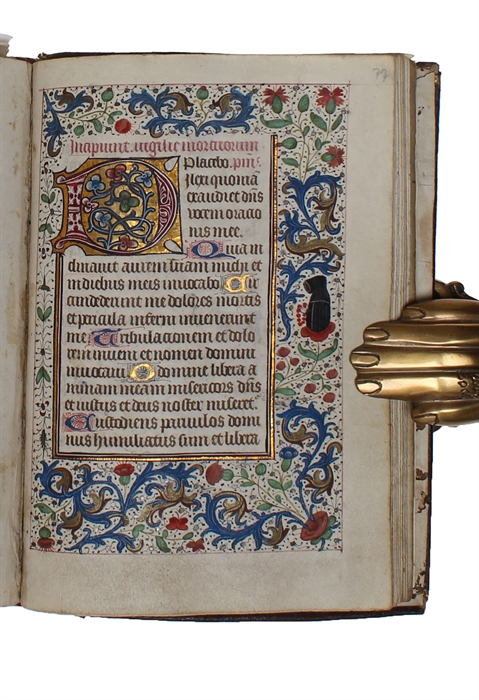 79
Incipiunt vigilie mortuorum
Placebo. psius
Dilexi quoniā
exaudiet dns
vocem oratio
nis mee. Quia in
clinauit aurem suam michi et
in diebus meis inuocabo Cir
cumdederunt me dolores mortis
et pericula inferni inuenerunt
me Tribulationem et dolo
rem inueni et nomen domini
inuocaui Domine libera a
nimam meam misericors dns
et iustus et deus noster miseret.
Custodiens paruulos domi
nus humiliatus sum et libera